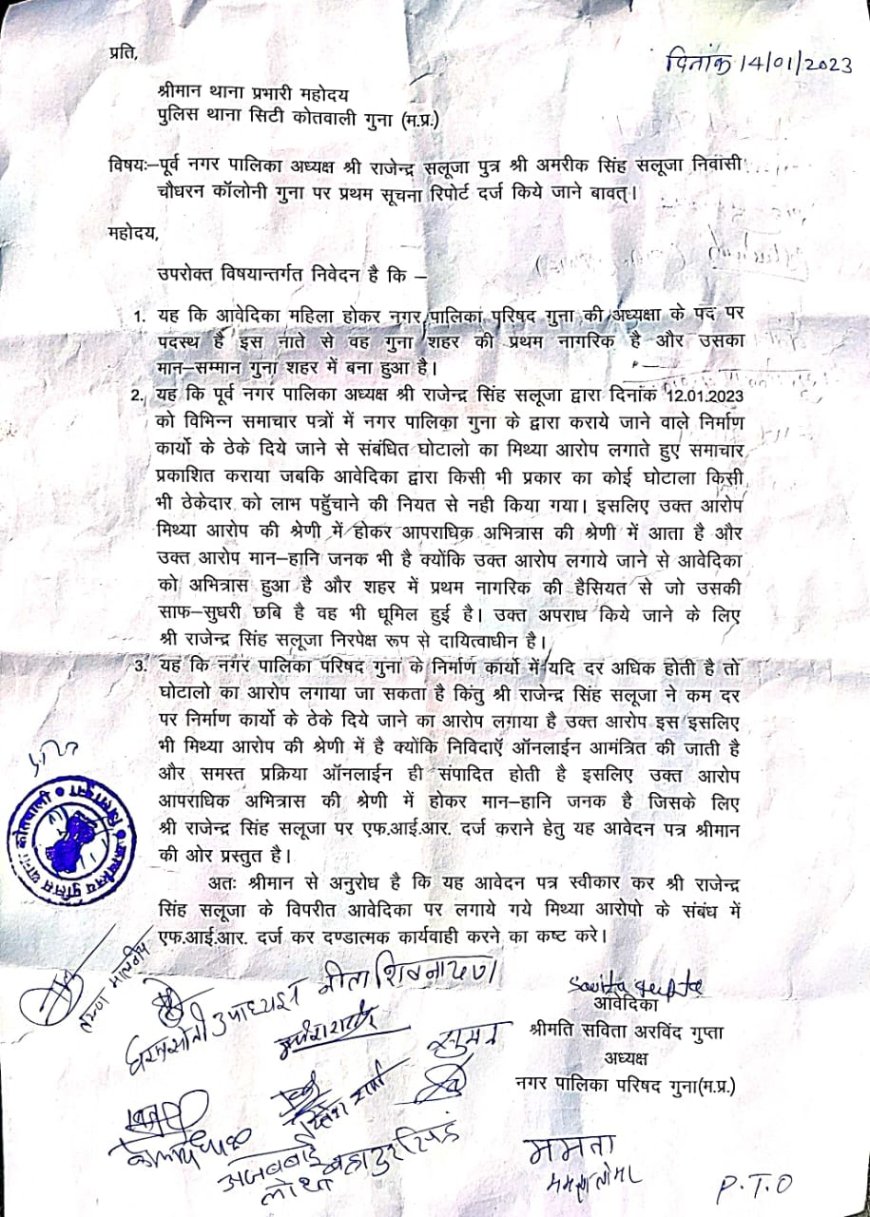 प्रति,
दिनांक 14/01/2023
श्रीमान थाना प्रभारी महोदय
पुलिस थाना सिटी कोतवाली गुना (म.प्र.)
विषयः–पूर्व नगर पालिका अध्यक्ष श्री राजेन्द्र सलूजा पुत्र श्री अमरीक सिंह सलूजा निवासी
चौधरन कॉलोनी गुना पर प्रथम सूचना रिपोर्ट दर्ज किये जाने बावत्।
महोदय,
उपरोक्त विषयान्तर्गत निवेदन है कि –
1. यह कि आवेदिका महिला होकर नगर पालिका परिषद गुना की अध्यक्षा के पद पर
पदस्थ है इस नाते से वह गुना शहर की प्रथम नागरिक है और उसका
मान–सम्मान गुना शहर में बना हुआ है।
2. यह कि पूर्व नगर पालिका अध्यक्ष श्री राजेन्द्र सिंह सलूजा द्वारा दिनांक 12.01.2023
को विभिन्न समाचार पत्रों में नगर पालिका गुना के द्वारा कराये जाने वाले निर्माण
कार्यो के ठेके दिये जाने से संबंधित घोटालो का मिथ्या आरोप लगाते हुए समाचार
प्रकाशित कराया जबकि आवेदिका द्वारा किसी भी प्रकार का कोई घोटाला किसी
भी ठेकेदार को लाभ पहुॅचाने की नियत से नही किया गया। इसलिए उक्त आरोप
मिथ्या आरोप की श्रेणी में होकर आपराधिक अभित्रास की श्रेणी में आता है और
उक्त आरोप मान–हानि जनक भी है क्योंकि उक्त आरोप लगाये जाने से आवेदिका
को अभित्रास हुआ है और शहर में प्रथम नागरिक की हैसियत से जो उसकी
साफ–सुधरी छबि है वह भी धूमिल हुई है। उक्त अपराध किये जाने के लिए
श्री राजेन्द्र सिंह सलूजा निरपेक्ष रूप से दायित्वाधीन है।
3. यह कि नगर पालिका परिषद गुना के निर्माण कार्यो में यदि दर अधिक होती है तो
घोटालो का आरोप लगाया जा सकता है किंतु श्री राजेन्द्र सिंह सलूजा ने कम दर
पर निर्माण कार्यो के ठेके दिये जाने का आरोप लगाया है उक्त आरोप इस इसलिए
भी मिथ्या आरोप की श्रेणी में है क्योंकि निविदाऍ ऑनलाईन आमंत्रित की जाती है
और समस्त प्रक्रिया ऑनलाईन ही संपादित होती है इसलिए उक्त आरोप
आपराधिक अभित्रास की श्रेणी में होकर मान–हानि जनक है जिसके लिए
श्री राजेन्द्र सिंह सलूजा पर एफ.आई.आर. दर्ज कराने हेतु यह आवेदन पत्र श्रीमान
की ओर प्रस्तुत है।
अतः श्रीमान से अनुरोध है कि यह आवेदन पत्र स्वीकार कर श्री राजेन्द्र
सिंह सलूजा के विपरीत आवेदिका पर लगाये गये मिथ्या आरोपो के संबंध में
एफ.आई.आर. दर्ज कर दण्डात्मक कार्यवाही करने का कष्ट करे।
Savita Gupta
आवेदिका
श्रीमति सविता अरविंद गुप्ता
अध्यक्ष
नगर पालिका परिषद गुना(म.प्र.)
उपाध्यक्ष
सुमन
अजबबाई
लोधा
ममता
P.T.O